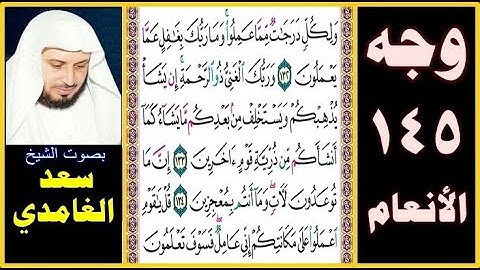 وجه
١٤٥
الأنعام
وَلِكُلٍّ دَرَجَٰتٌ مِّمَّا عَمِلُوا۟ ۚ وَمَا رَبُّكَ بِغَٰفِلٍ عَمَّا
يَعْمَلُونَ ١٣٢ وَرَبُّكَ ٱلْغَنِىُّ ذُو ٱلرَّحْمَةِ ۚ إِن يَشَأْ
يُذْهِبْكُمْ وَيَسْتَخْلِفْ مِنۢ بَعْدِكُم مَّا يَشَآءُ كَمَآ
أَنشَأَكُم مِّن ذُرِّيَّةِ قَوْمٍ ءَاخَرِينَ ١٣٣ إِنَّ مَا
تُوعَدُونَ لَءَاتٍ ۖ وَمَآ أَنتُم بِمُعْجِزِينَ ١٣٤ قُلْ يَٰقَوْمِ
ٱعْمَلُوا۟ عَلَىٰ مَكَانَتِكُمْ إِنِّى عَامِلٌ ۖ فَسَوْفَ تَعْلَمُونَ
بصوت الشيخ
سعد
الغامدي